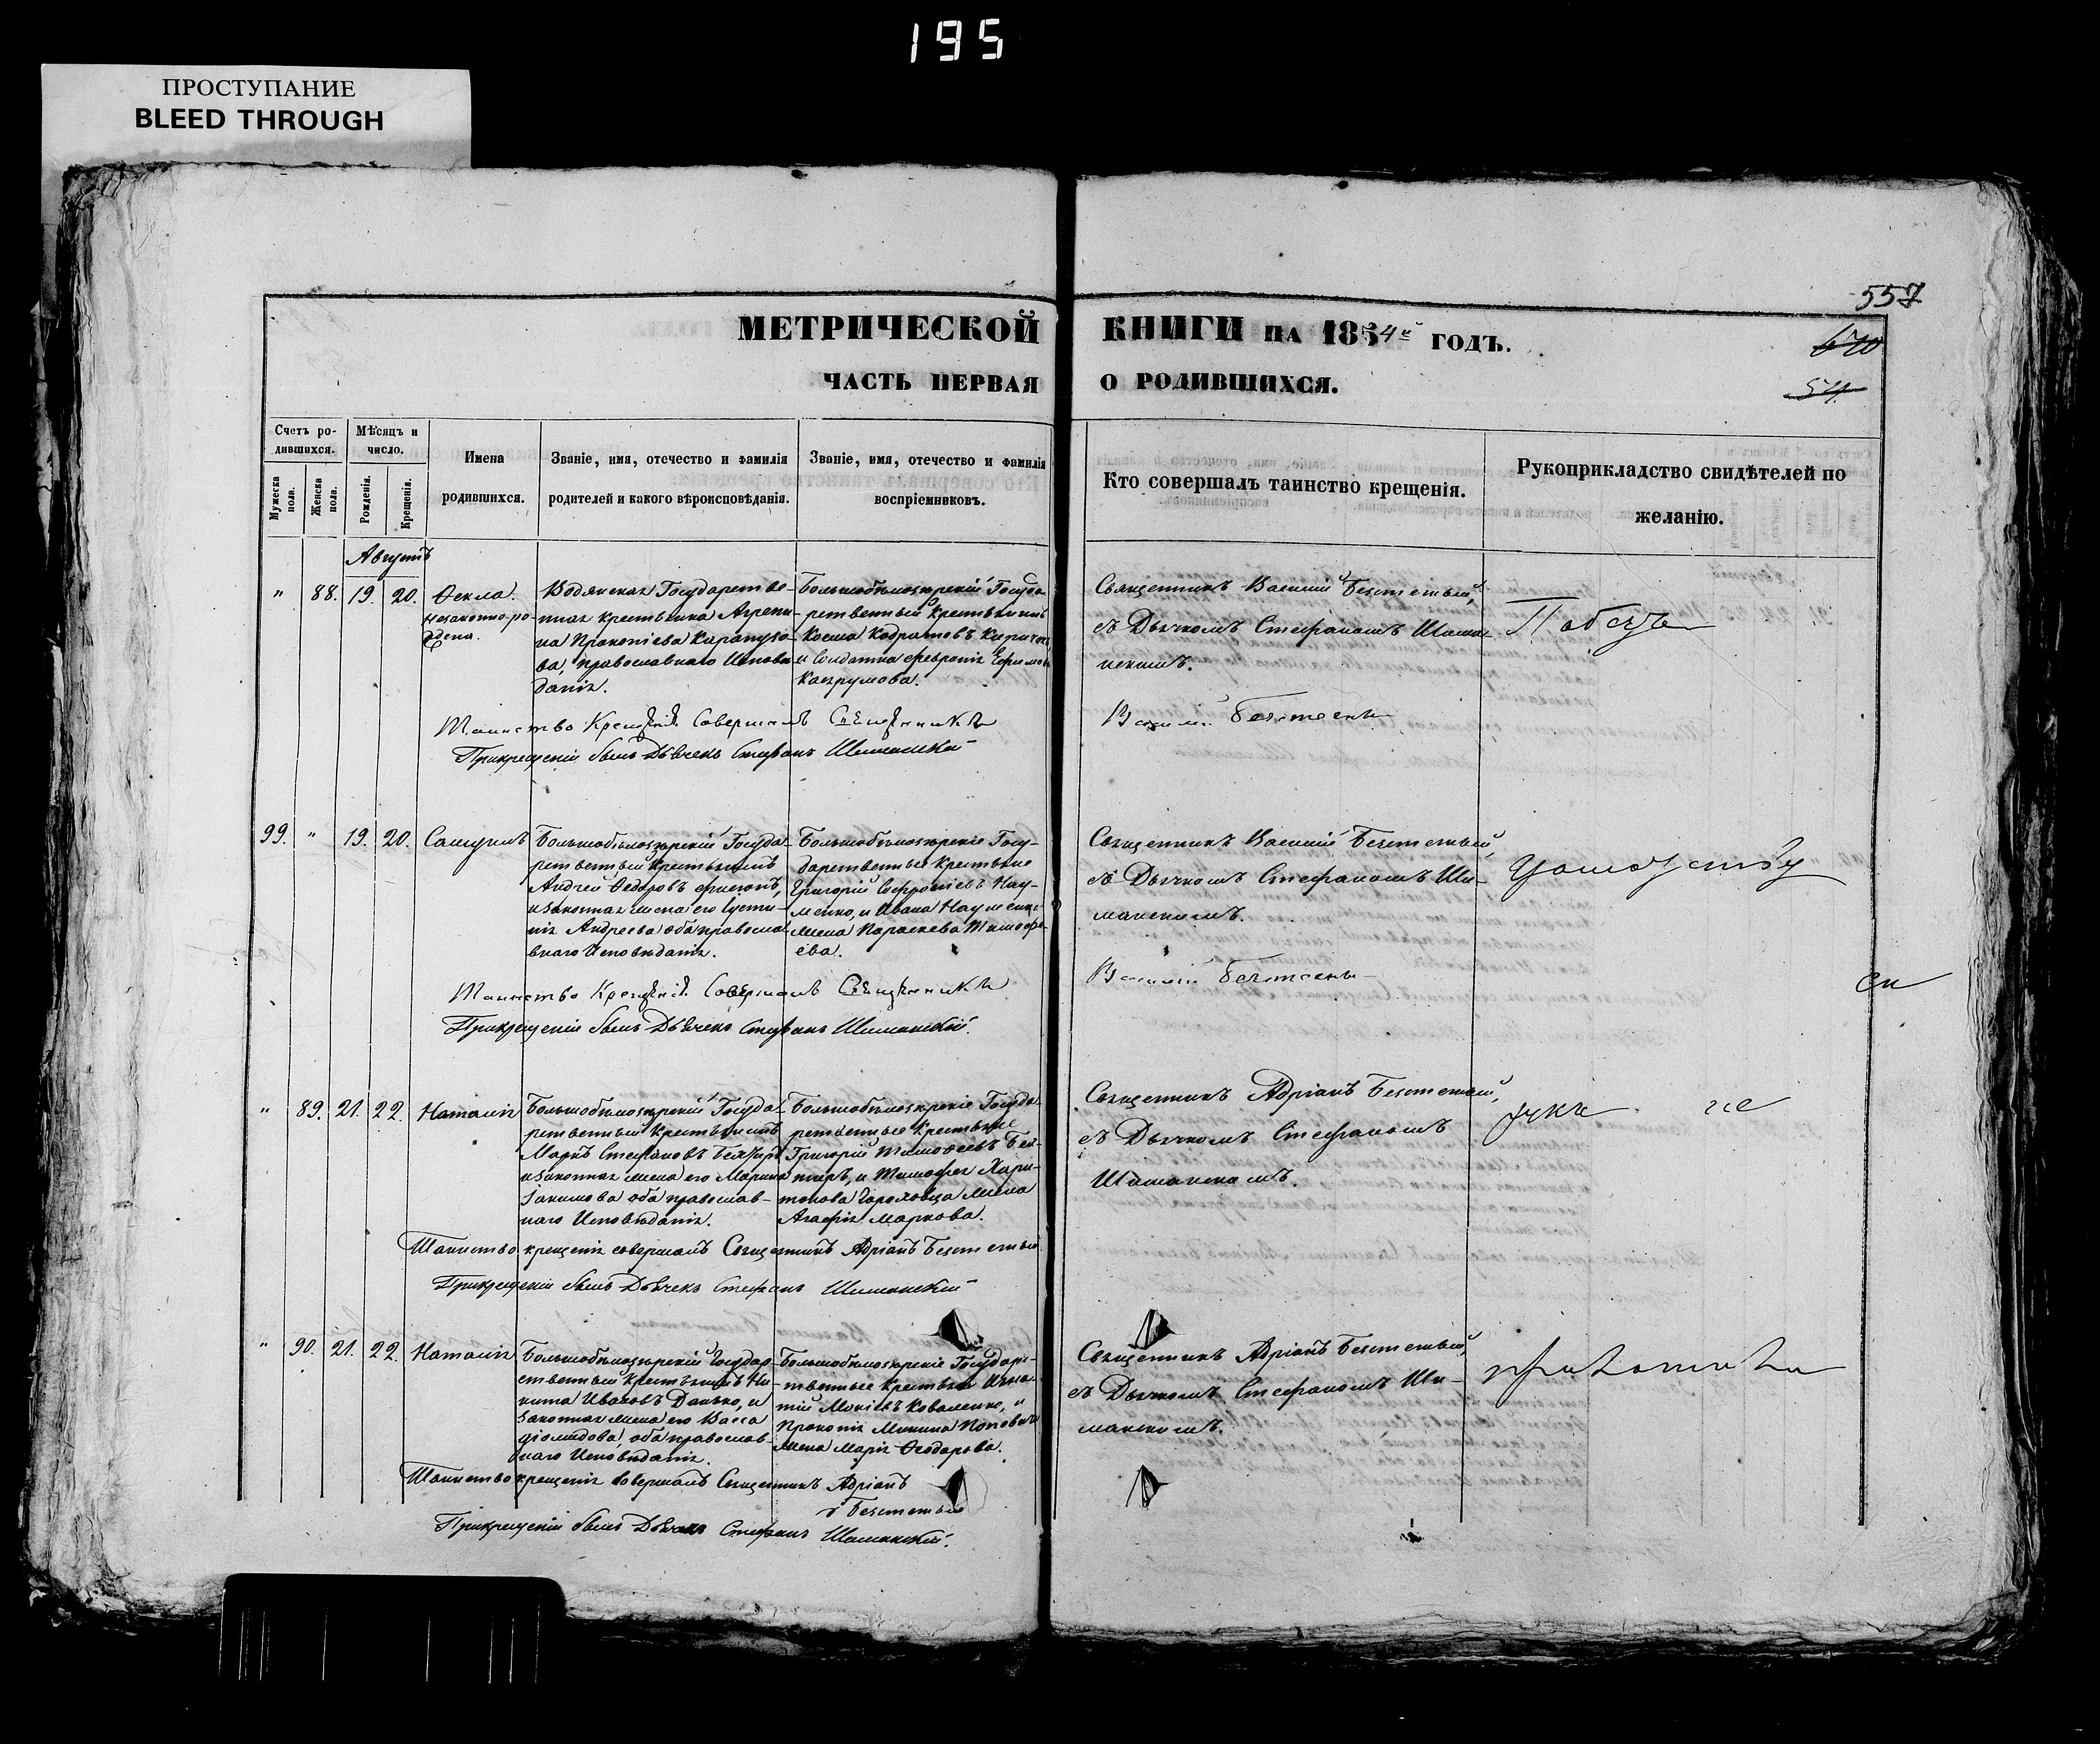 195
ПРОСТУПАНИЕ
BLEED THROUGH
557
МЕТРИЧЕСКОЙ КНИГИ на 1854й ГОДЪ.
670
ЧАСТЬ ПЕРВАЯ О РОДИВШИХСЯ.
Счетъ родившихся.
Мужеска пола.
Женска пола.
Мѣсяцъ и число.
Рожденія.
Крещенія.
Имена родившихся.
Званіе, имя, отечество и фамилія родителей и какого вѣроисповѣданія.
Званіе, имя, отечество и фамилія воспріемниковъ.
Кто совершалъ таинство крещенія.
Рукоприкладство свидѣтелей по желанію.
Августъ
" 88. 19. 20.
Ѳекла.
незаконно-ро-
ждена.
Водянская Государстве-
нная крестьянка Агрепи-
на Прокопіева
ва, православнаго Исповѣ-
данія.
Большобѣлозѣрскій Госуда-
рственный Крестьянинъ
Косма Кодратовъ
и Солдатка Февронія
Священникъ Василій Безстетный,
съ Дьячкомъ Стефаномъ Шима-
нскимъ.
Таинство Крещенія Совершалъ Священникъ
Василій
При крещеніи былъ Дьячекъ Стефанъ Шиманскій
99. " 19. 20.
Самуилъ
Большобѣлозѣрскій Госуда-
рственный Крестьянинъ
Андрей Ѳедоровъ
и законная жена его Іусти-
нія Андреева оба православ-
внаго Исповѣданія.
Большобѣлозѣрскіе Госу-
дарственные Крестьяне
Григорій Софроніевъ Нау-
менко, и Ивана Науменка
жена Параскева Тимофе-
ева.
Священникъ Василій Безстетный,
съ Дьячкомъ Стефаномъ Ши-
манскимъ.
Таинство Крещенія Совершалъ Священникъ
Василій
При крещеніи былъ Дьячекъ Стефанъ Шиманскій.
" 89. 21. 22.
Наталія
Большобѣлозѣрскій Госуда-
рственный Крестьянинъ
Маркъ Стефановъ
и законная жена его Марина
Іакимова оба православ-
наго Исповѣданія.
Большобѣлозѣрскіе Госуда-
рственные Крестьяне
Григорій Тимофеевъ
и Тимофея Хари-
тонова Гороховца жена
Агафія Маркова.
Священникъ Адріанъ Безстетный,
съ Дьячкомъ Стефаномъ
Шиманскимъ.
Таинство крещенія совершалъ Священникъ Адріанъ Безстетный.
При крещеніи былъ Дьячекъ Стефанъ Шиманскій
" 90. 21. 22.
Наталія
Большобѣлозѣрскій Государ-
ственный Крестьянинъ Ни-
кита Ивановъ Данько, и
законная жена его Васса
Діомидова оба православ-
наго Исповѣданія.
Большобѣлозѣрскіе Государс-
твенные Крестьяне Игна-
тій Моисеевъ Коваленко, и
Прокопія Минина Поповича
жена Марія Ѳеодорова.
Священникъ Адріанъ Безстетный,
съ Дьячкомъ Стефаномъ Ши-
манскимъ.
Таинство крещенія совершалъ Священникъ Адріанъ
Безстетный
При крещеніи былъ Дьячекъ Стефанъ Шиманскій.